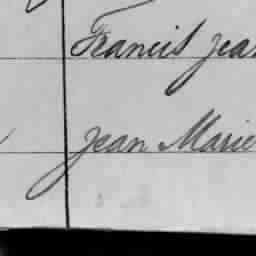 Francis jean
Jean Marie